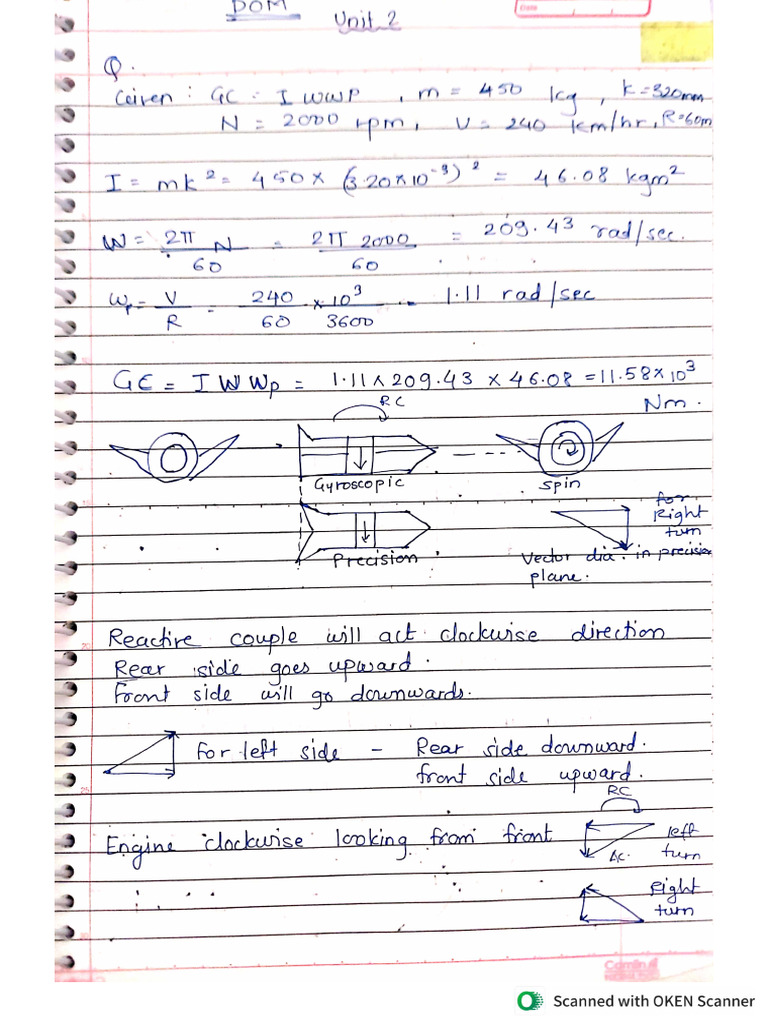 DOM
Unit 2
Date
Q.
Given : GC = I W WP , m = 450 kg , k = 320mm
N = 2000 rpm, V = 240 km/hr, R=60m
I = mk² = 450 × (320×10⁻³)² = 46.08 kgm²
W = 2π N / 60 = 2π 2000 / 60 = 209.43 rad/sec.
Wp = V / R = 240 / 60 × 10³ / 3600 = 1.11 rad/sec
GC = I W Wp = 1.11 × 209.43 × 46.08 = 11.58×10³
Nm.
RC
Gyroscopic
Spin
for
Right
turn
Precision
Vector dia. in precision
plane.
Reactire couple will act clockwise direction
Rear side goes upward.
front side will go downwards.
for left side - Rear side downward.
front side upward.
RC
Engine clockwise looking from front
left
turn
AC.
Right
turn
Camlin
Scanned with OKEN Scanner